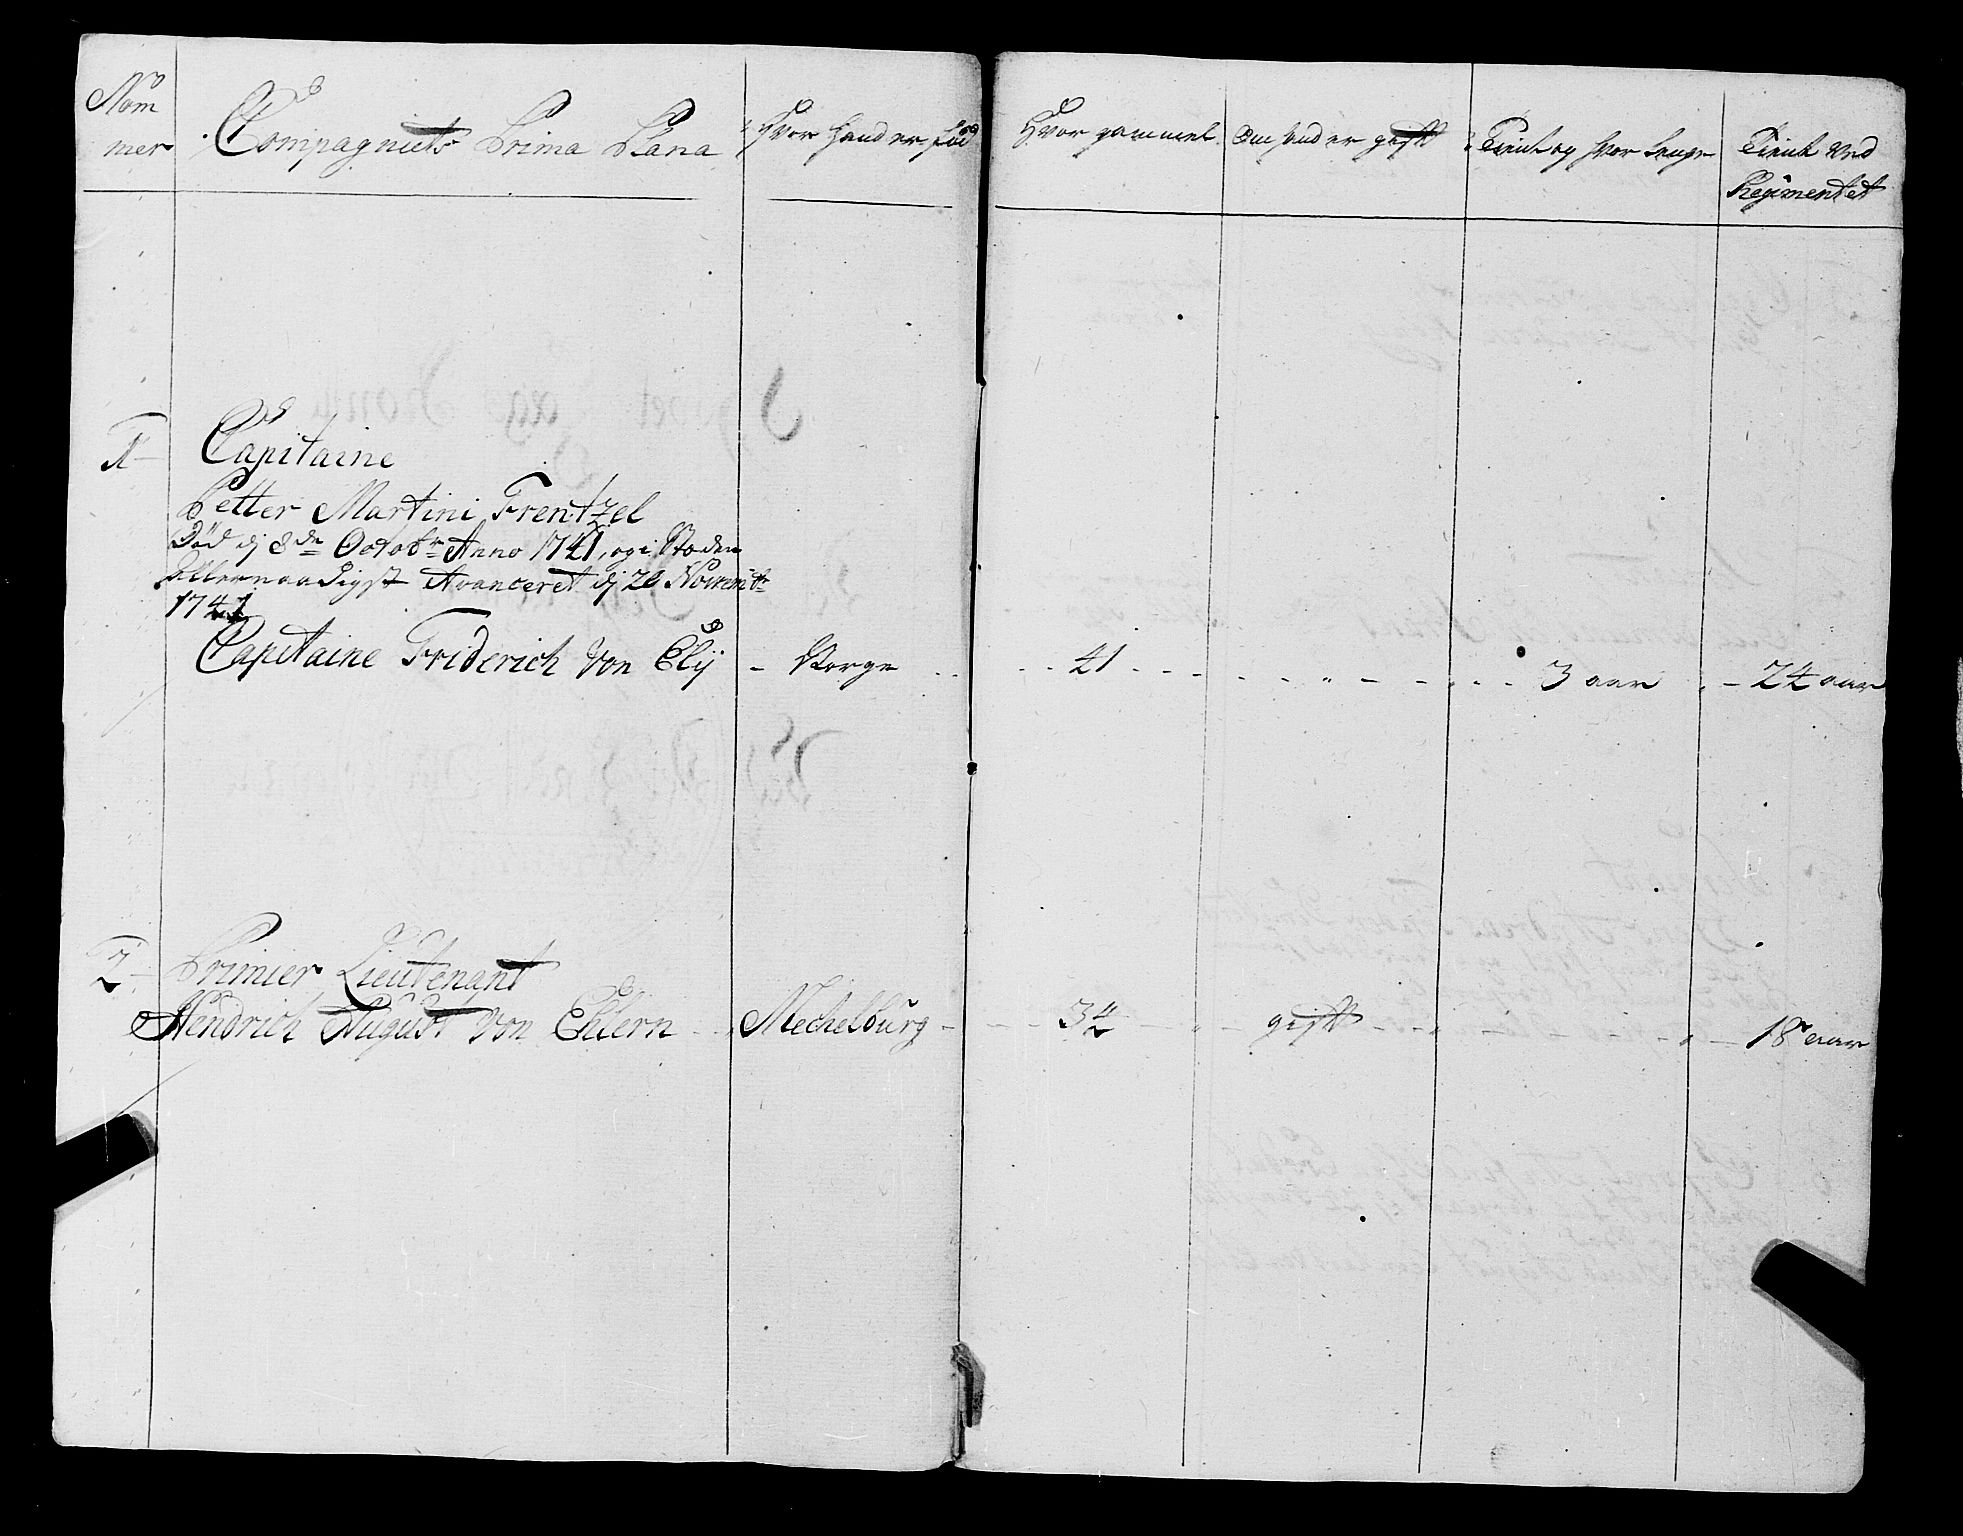 Nom
mer
Compagniets Prima Plana
Hvor hand er fød
Hvor gammel
Om hand er gift
Tient og hvor lenge
Tient ved
Regimentet
1
Capitaine
Petter Martini Frentzel
Død dj 8de Octobr Anno 1741, og i Steden
Allernaadigst Avanceret dj 20 Novembr
1741
Capitaine Friderich Von Elÿ - Norge - 41 - 3 aar - 24 aar
2
Primier Lieutenant
Hendrich August Von Ehlern - Mechelburg - 34 - gift - 18 aar